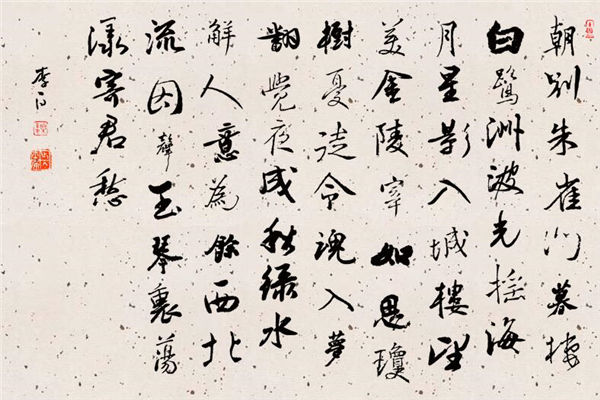 朝别朱雀门暮棲
白鷺洲波光搖海
月星影入城樓望
美金陵宰如思瓊
樹憂徒令魂入夢
翻覺夜成秋綠水
解人意為餘西北
流因聲玉琴裏蕩
漾寄君愁
李白